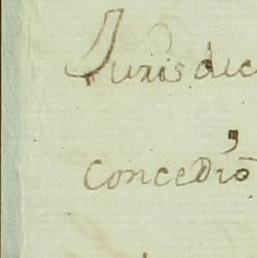 Jurisdic
concedió